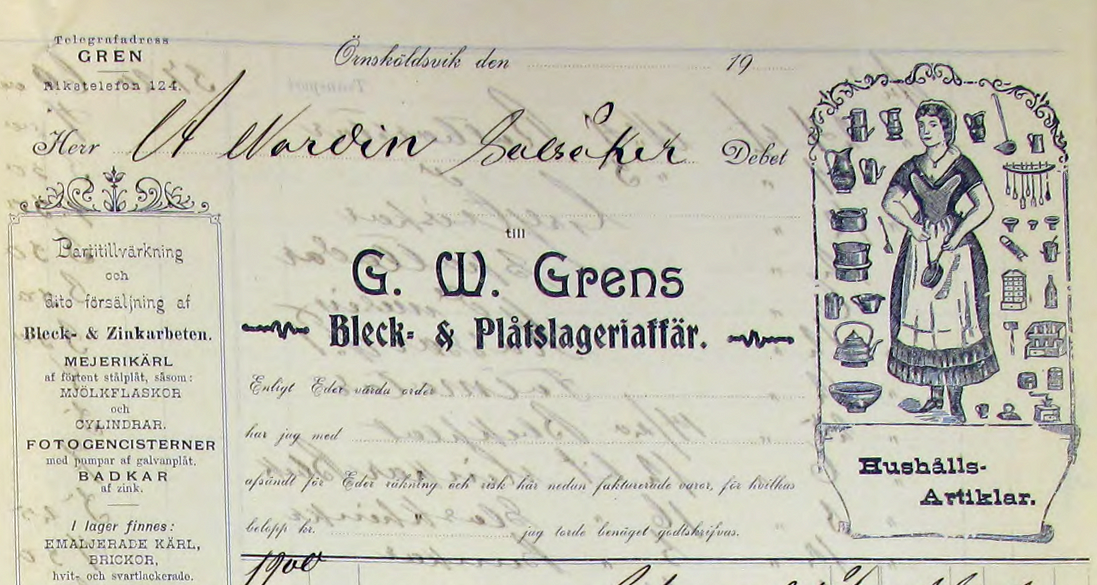 Telegrafadress
GREN
Rikstelefon 124.
Örnsköldsvik den 19
Herr A Nordin Salsåker Debet
till
G. W. Grens
Bleck- & Plåtslageriaffär.
Enligt Eder värda order
har jag med
afsändt för Eder räkning och risk här nedan fakturerade varor, för hvilkas
belopp kr. jag torde benäget godtskrifvas.
1900
Partitillvärkning
och
dito försäljning af
Bleck- & Zinkarbeten.
MEJERIKÄRL
af förtent stålplåt, såsom:
MJÖLKFLASKOR
och
CYLINDRAR.
FOTOGENCISTERNER
med pumpar af galvanplåt.
BADKAR
af zink.
I lager finnes:
EMALJERADE KÄRL,
BRICKOR,
hvit- och svartlackerade.
Hushålls-
Artiklar.